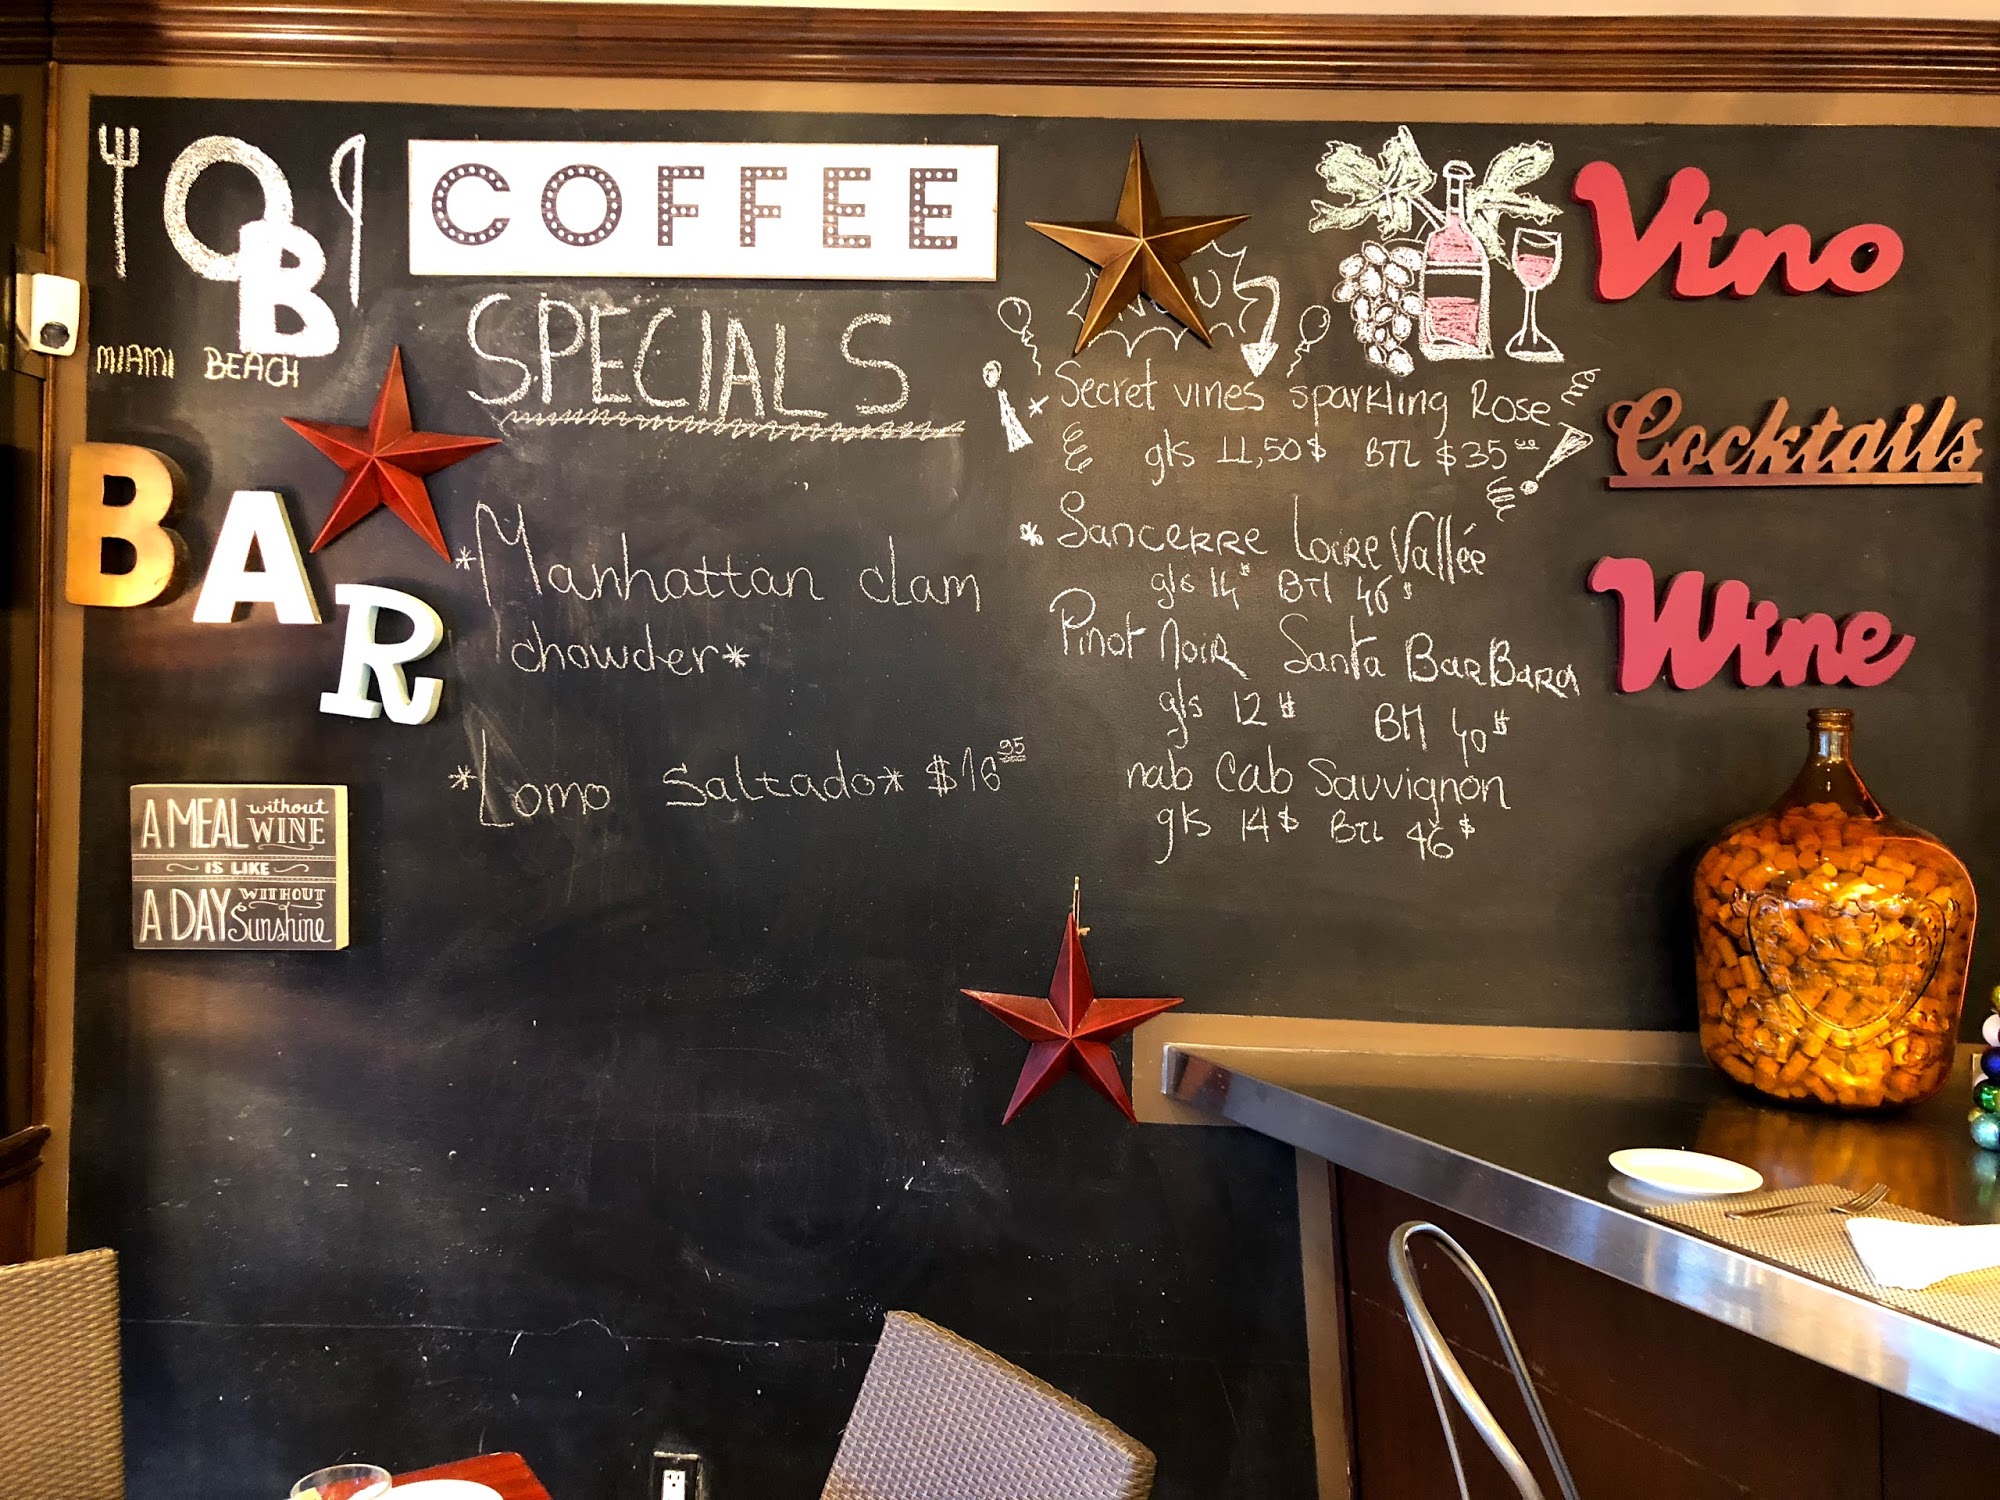 OB
MIAMI BEACH
BAR
A MEAL without
WINE
IS LIKE
A DAY WITHOUT
Sunshine
COFFEE
SPECIALS
*Manhattan clam
chowder*
*Lomo Saltado* $16 95
* Secret vines sparkling Rose
gls 11,50$ BTL $35 00
* Sancerre Loire Vallée
gls 14$ BTL 46$
Pinot Noir Santa Barbara
gls 12$ BTL 40$
nab Cab Sauvignon
gls 14$ BTL 46$
Vino
Cocktails
Wine